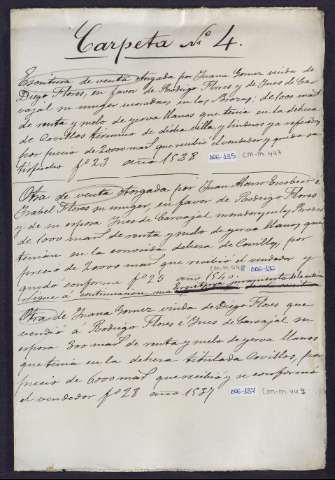 Carpeta Nº 4.
Escritura de venta otorgada por Juana Gomez viuda de
Diego Flores, en favor de Rodrigo Flores y de Ines de Car-
vajal su mujer moradores en las Brozas, de 1000 mars
de renta y medio de yerva llanos que tenia en la dehesa
de Covillos término de dicha villa, y linderos ya referidos
por precio de 20000 mars que recibió el vendedor y quedó sa-
tisfecho fº 23 año 1538
006-135 cm-m 447
Otra de venta otorgada por Juan Alonso Escobar é
Isabel Flores su mujer, en favor de Rodrigo Flores
y de su esposa Ines de Carvajal moradores en las Brozas
de 1000 mars de renta y medio de yerva llanos que
tenian en la comision dehesa de Covillos, por
precio de 20000 mars que recibió el vendedor y
quedó conforme fº 25 año 1540.
448 006-136
Sigue á continuacion una
Otra de Juana Gomez viuda de Diego Flores que
vendió á Rodrigo Flores é Ines de Carvajal su
esposa 300 mars de renta y medio de yerva llanos
que tenia en la dehesa titulada Covillos, por
precio de 6000 mars que recibió y se conformó
el vendedor fº 28 año 1537
006-137 cm-m 449